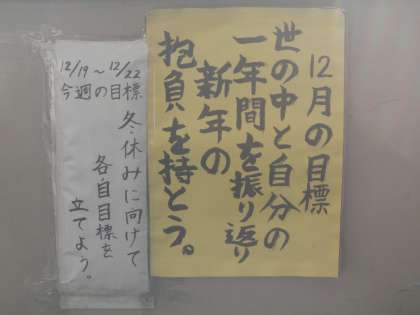 12月の目標
世の中と自分の
一年間を振り返り
新年の
抱負を持とう。
12/19～12/22
今週の目標
冬休みに向けて
各自目標を
立てよう。